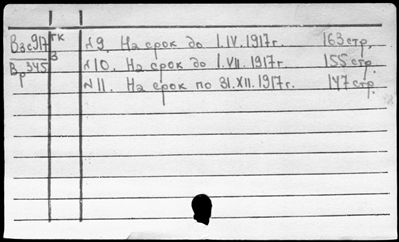 Взс917 гк №9. На срок до 1.IV.1917г. 163стр.
Вр345 3 №10. На срок до 1.VII.1917г. 155стр.
№11. На срок по 31.XII.1917г. 147стр.